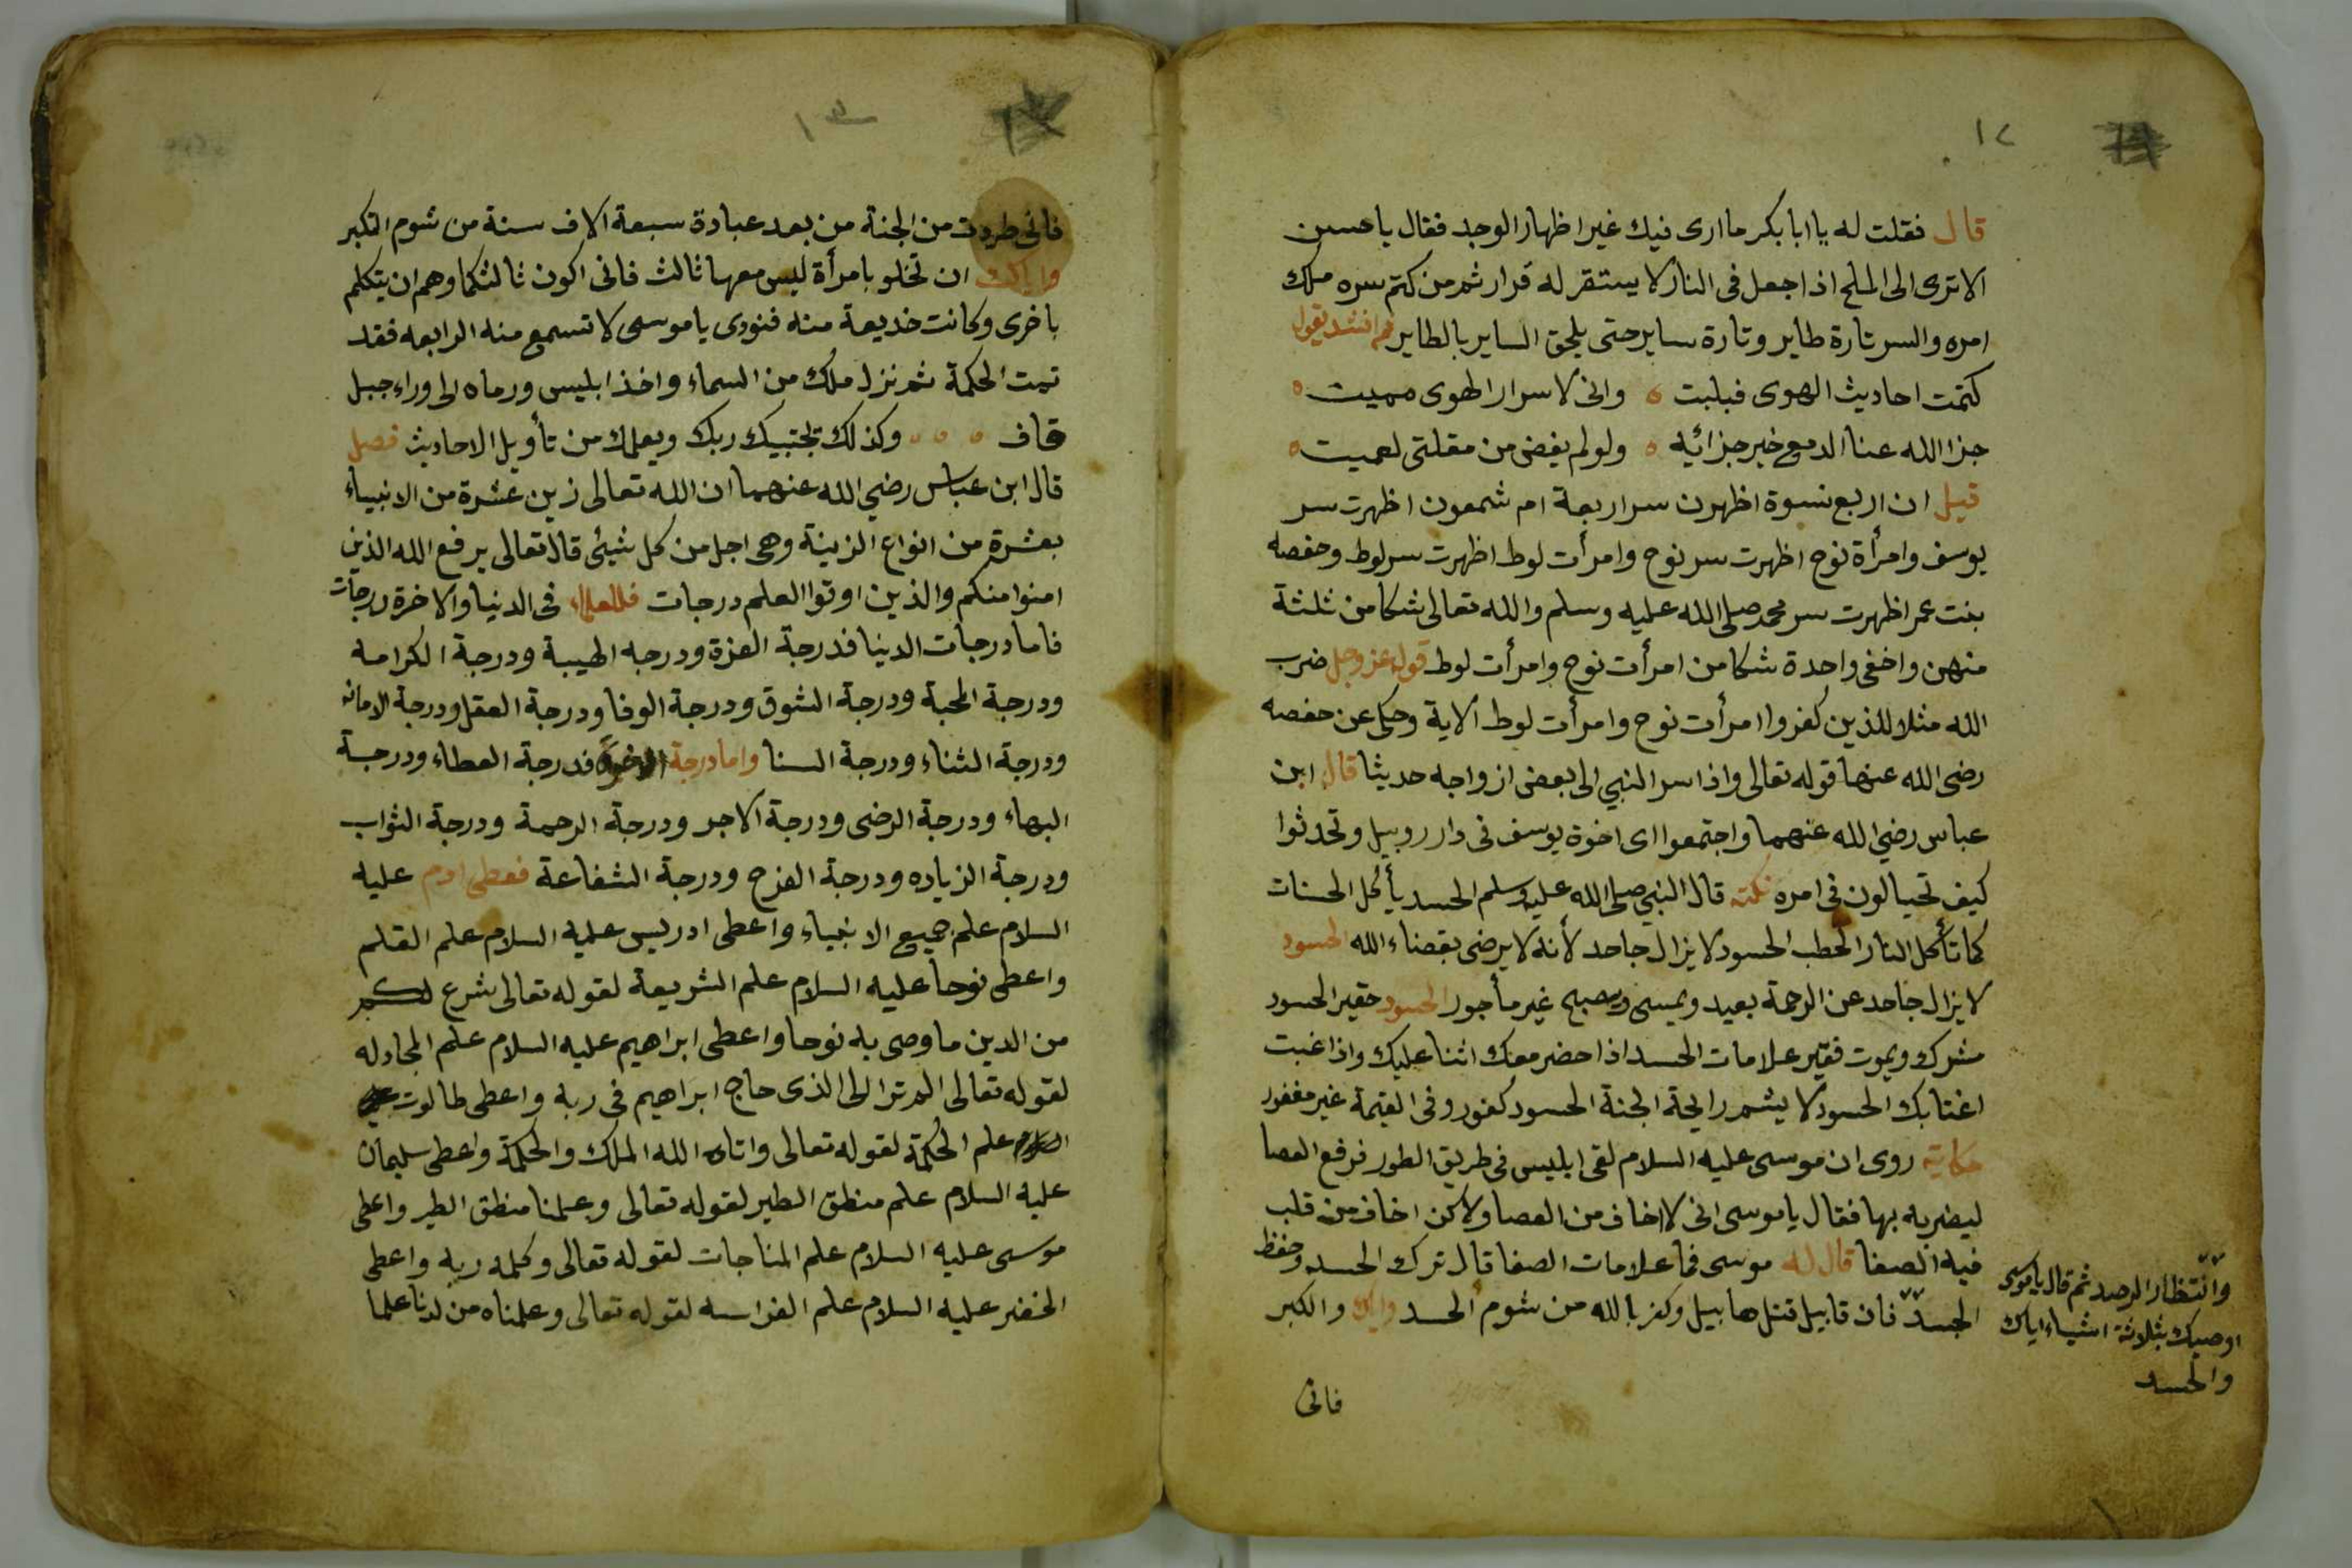 ١٢
قال فقلت له يا ابا بكر ما ارى فيك غير اظهار الوجد فقال يا حسين
الا ترى الى الملح اذا جعل فى النار لا يستقر له قرار ثم من كتم سره ملك
امره والسر تارة طاير وتارة ساير حتى يلحق الساير بالطاير ثم انشد يقول
كتمت احاديث الهوى فبليت ه وانى لاسرار الهوى مميت ه
جزا الله عنا الدمع خير جزائيه ه ولو لم يفض من مقلتى لعميت ه
قيل ان اربع نسوة اظهرن سر اربعة ام شمعون اظهرت سر
يوسف وامرأة نوح اظهرت سر نوح وامرأت لوط اظهرت سر لوط وحفصه
بنت عمر اظهرت سر محمد صلى الله عليه وسلم والله تعالى شكا من ثلثة
منهن واخفى واحدة شكا من امرأت نوح وامرأت لوط قوله عز وجل ضرب
الله مثلا للذين كفروا امرأت نوح وامرأت لوط الاية وحكى عن حفصه
رضى الله عنها قوله تعالى واذا سر النبي الى بعض ازواجه حديثا قال ابن
عباس رضي الله عنهما واجتمعوا اى اخوة يوسف فى دار روبيل وتحدثوا
كيف تحيالون فى امره نكته قال النبي صلى الله عليه وسلم الحسد يأكل الحسنات
كما تأكل النار الحطب الحسود لا يزال جاحد لأنه لا يرضى بقضاء الله الحسود
لا يزال جاحد عن الرحمة بعيد ويمسى ويصبح غير مأجور الحسود حقير الحسود
مشرك ويموت فقير علامات الحسد اذا حضر معك اثنا عليك واذا غبت
اغتابك الحسود لا يشم رايحة الجنة الحسود كفور وفى القيمة غير مغفور
حكاية روى ان موسى عليه السلام لقى ابليس فى طريق الطور فرفع العصا
ليضربه بها فقال يا موسى انى لا اخاف من العصا ولاكن اخاف من قلب
فيه الصفا قال له موسى فما علامات الصفا قال ترك الحسد وحفظ
الجسد فان قابيل قتل هابيل وكفر بالله من شوم الحسد واياك والكبر
وانتظار الرصد ثم قال يا موسى
اوصيك بثلاثة اشياء اياك
والحسد
فانى
فانى طردت من الجنة من بعد عبادة سبعة الاف سنة من شوم التكبر
واياك ان تخلو بامرأة ليس معها ثالث فانى اكون ثالثكما وهم ان يتكلم
باخرى وكانت خديعة منه فنودى يا موسى لا تسمع منه الرابعه فقد
تمت الحكمة ثم نزل ملك من السماء واخذ ابليس ورماه الى وراء جبل
قاف ه ه ه وكذلك يجتبيك ربك ويعلمك من تأويل الاحاديث فصل
قال ابن عباس رضي الله عنهما ان الله تعالى زين عشرة من الانبياء
بعشرة من انواع الزينة وهى اجل من كل شيئى قال تعالى يرفع الله الذين
امنوا منكم والذين اوتوا العلم درجات فللعلماء فى الدنيا والاخرة درجات
فاما درجات الدنيا فدرجة العزة ودرجه الهيبة ودرجة الكرامه
ودرجة المحبة ودرجة الشوق ودرجة الوفا ودرجة العقل ودرجة الامانه
ودرجة الثناء ودرجة السنا واما درجة الاخرة فدرجة العطاء ودرجة
البهاء ودرجة الرضى ودرجة الاجر ودرجة الرحمة ودرجة الثواب
ودرجة الزياده ودرجة الفرح ودرجة الشفاعة فعطى ادم عليه
السلام علم جميع الانبياء واعطى ادريس عليه السلام علم القلم
واعطى نوحا عليه السلام علم الشريعة لقوله تعالى شرع لكم
من الدين ما وصى به نوحا واعطى ابراهيم عليه السلام علم المجادله
لقوله تعالى الم ترا الى الذى حاج ابراهيم فى ربه واعطى طالوت عليه
السلام علم الحكمة لقوله تعالى واتاه الله الملك والحكمة واعطى سليمان
عليه السلام علم منطق الطير لقوله تعالى وعلمنا منطق الطير واعطى
موسى عليه السلام علم المناجات لقوله تعالى وكلمه ربه واعطى
الخضر عليه السلام علم الفراسه لقوله تعالى وعلمناه من لدنا علما